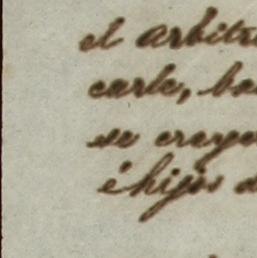 el arbitri
carle, ba
se creye
é hijos d